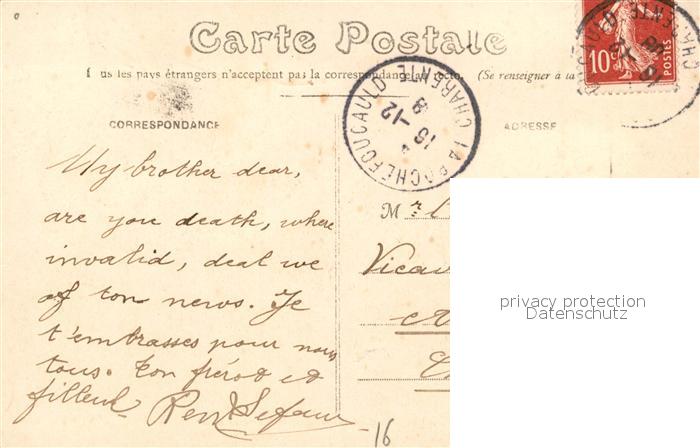 Carte Postale
us les pays étrangers n'acceptent pas la correspondance au recto. (Se renseigner à la
CORRESPONDANCE
ADRESSE
LA ROCHEFOUCAULD CHARENTE
16-12
10c
POSTES
CHARENTE
My brother dear,
are you death, where
invalid, deal we
of ton news. Je
t'embrasses pour nous
tous. ton frérot et
filleul
René
Mr
Vicai
16
privacy protection
Datenschutz